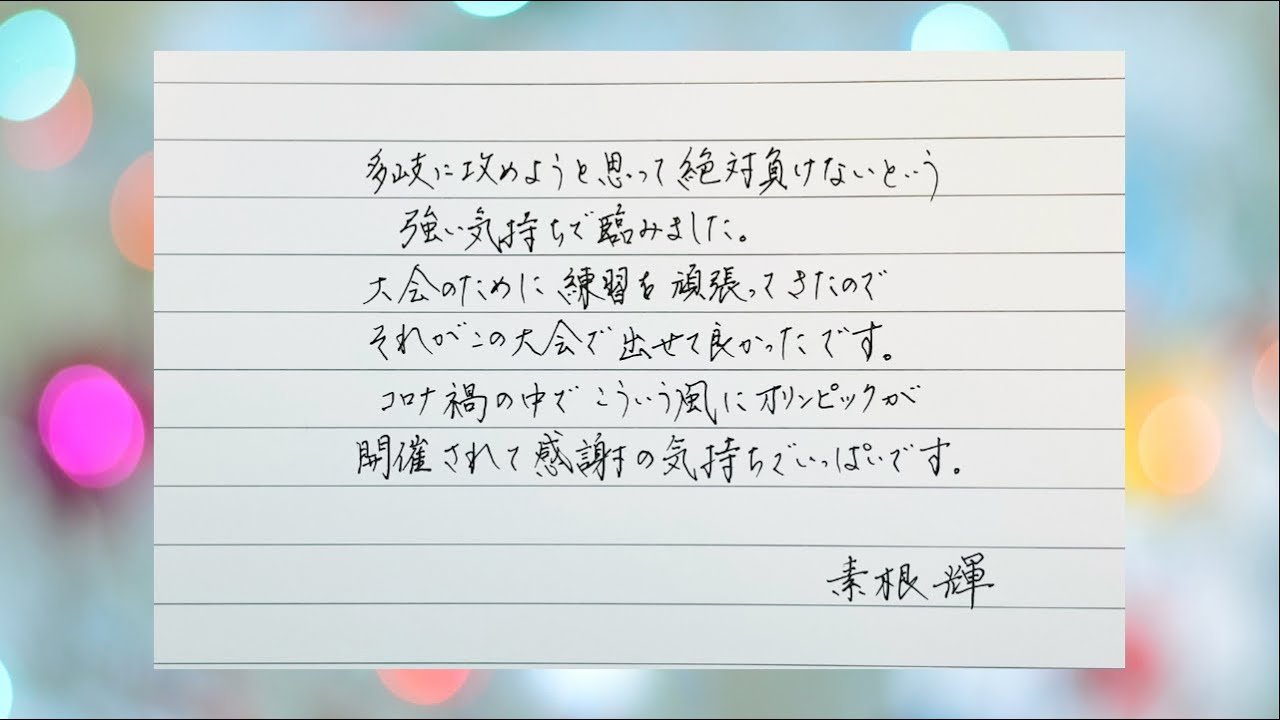 多岐に攻めようと思って絶対負けないという
強い気持ちで臨みました。
大会のために練習を頑張ってきたので
それがこの大会で出せて良かったです。
コロナ禍の中でこういう風にオリンピックが
開催されて感謝の気持ちでいっぱいです。
素根輝